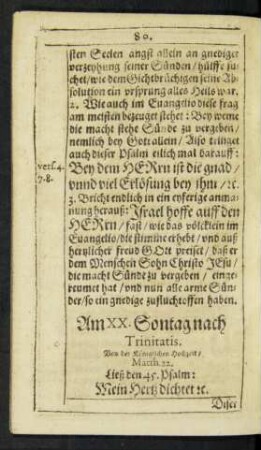 80.
sten Seelen angst allein an gnediger
verzeyhung seiner Sünden/ hülffe su-
chet/ wie dem Gichtbrüchigen seine Ab-
solution ein vrsprung alles Heils war.
2. Wie auch im Euangelio diese frag
am meisten bezeuget stehet: Bey weme
die macht stehe Sünde zu vergeben/
nemlich bey Gott allein/ Also dringet
auch dieser Psalm eilich mal darauff:
vers. 4. Bey dem HERrn ist die gnad/
7.8. vnnd viel Erlösung bey jhm/ ꝛc.
3. Bricht endlich in ein eyferige anma-
nung herauß: Israel hoffe auff den
HERrn/ fast/ wie das völcklein im
Euangelio/ die stimme erhebt/ vnd auß
hertzlicher freud GOtt preiset/ daß er
dem Menschen Sohn Christo JEsu/
die macht Sünde zu vergeben/ einge-
reumet hat/ vnd nun alle arme Sün-
der/ so ein gnedige zuflucht offen haben.
Am XX. Sontag nach
Trinitatis.
Von der Königlichen Hochzeit/
Matth. 22.
Ließ den 45. Psalm:
Mein Hertz dichtet ꝛc.
Diser